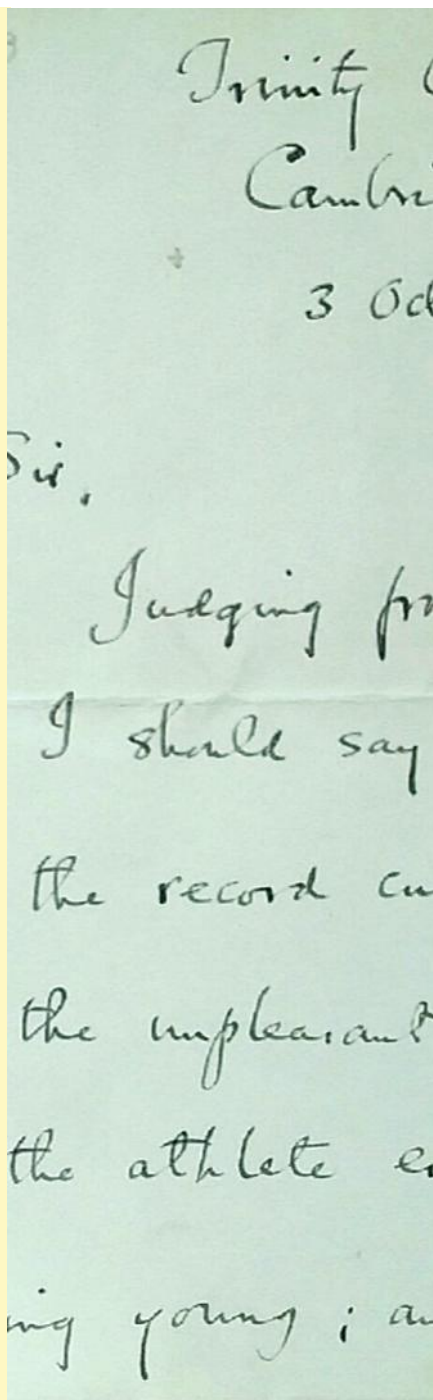 Trinity
Cambri
3 Oct
Sir,
Judging fro
I should say
the record cu
the unpleasant
the athlete en
ing young ; an